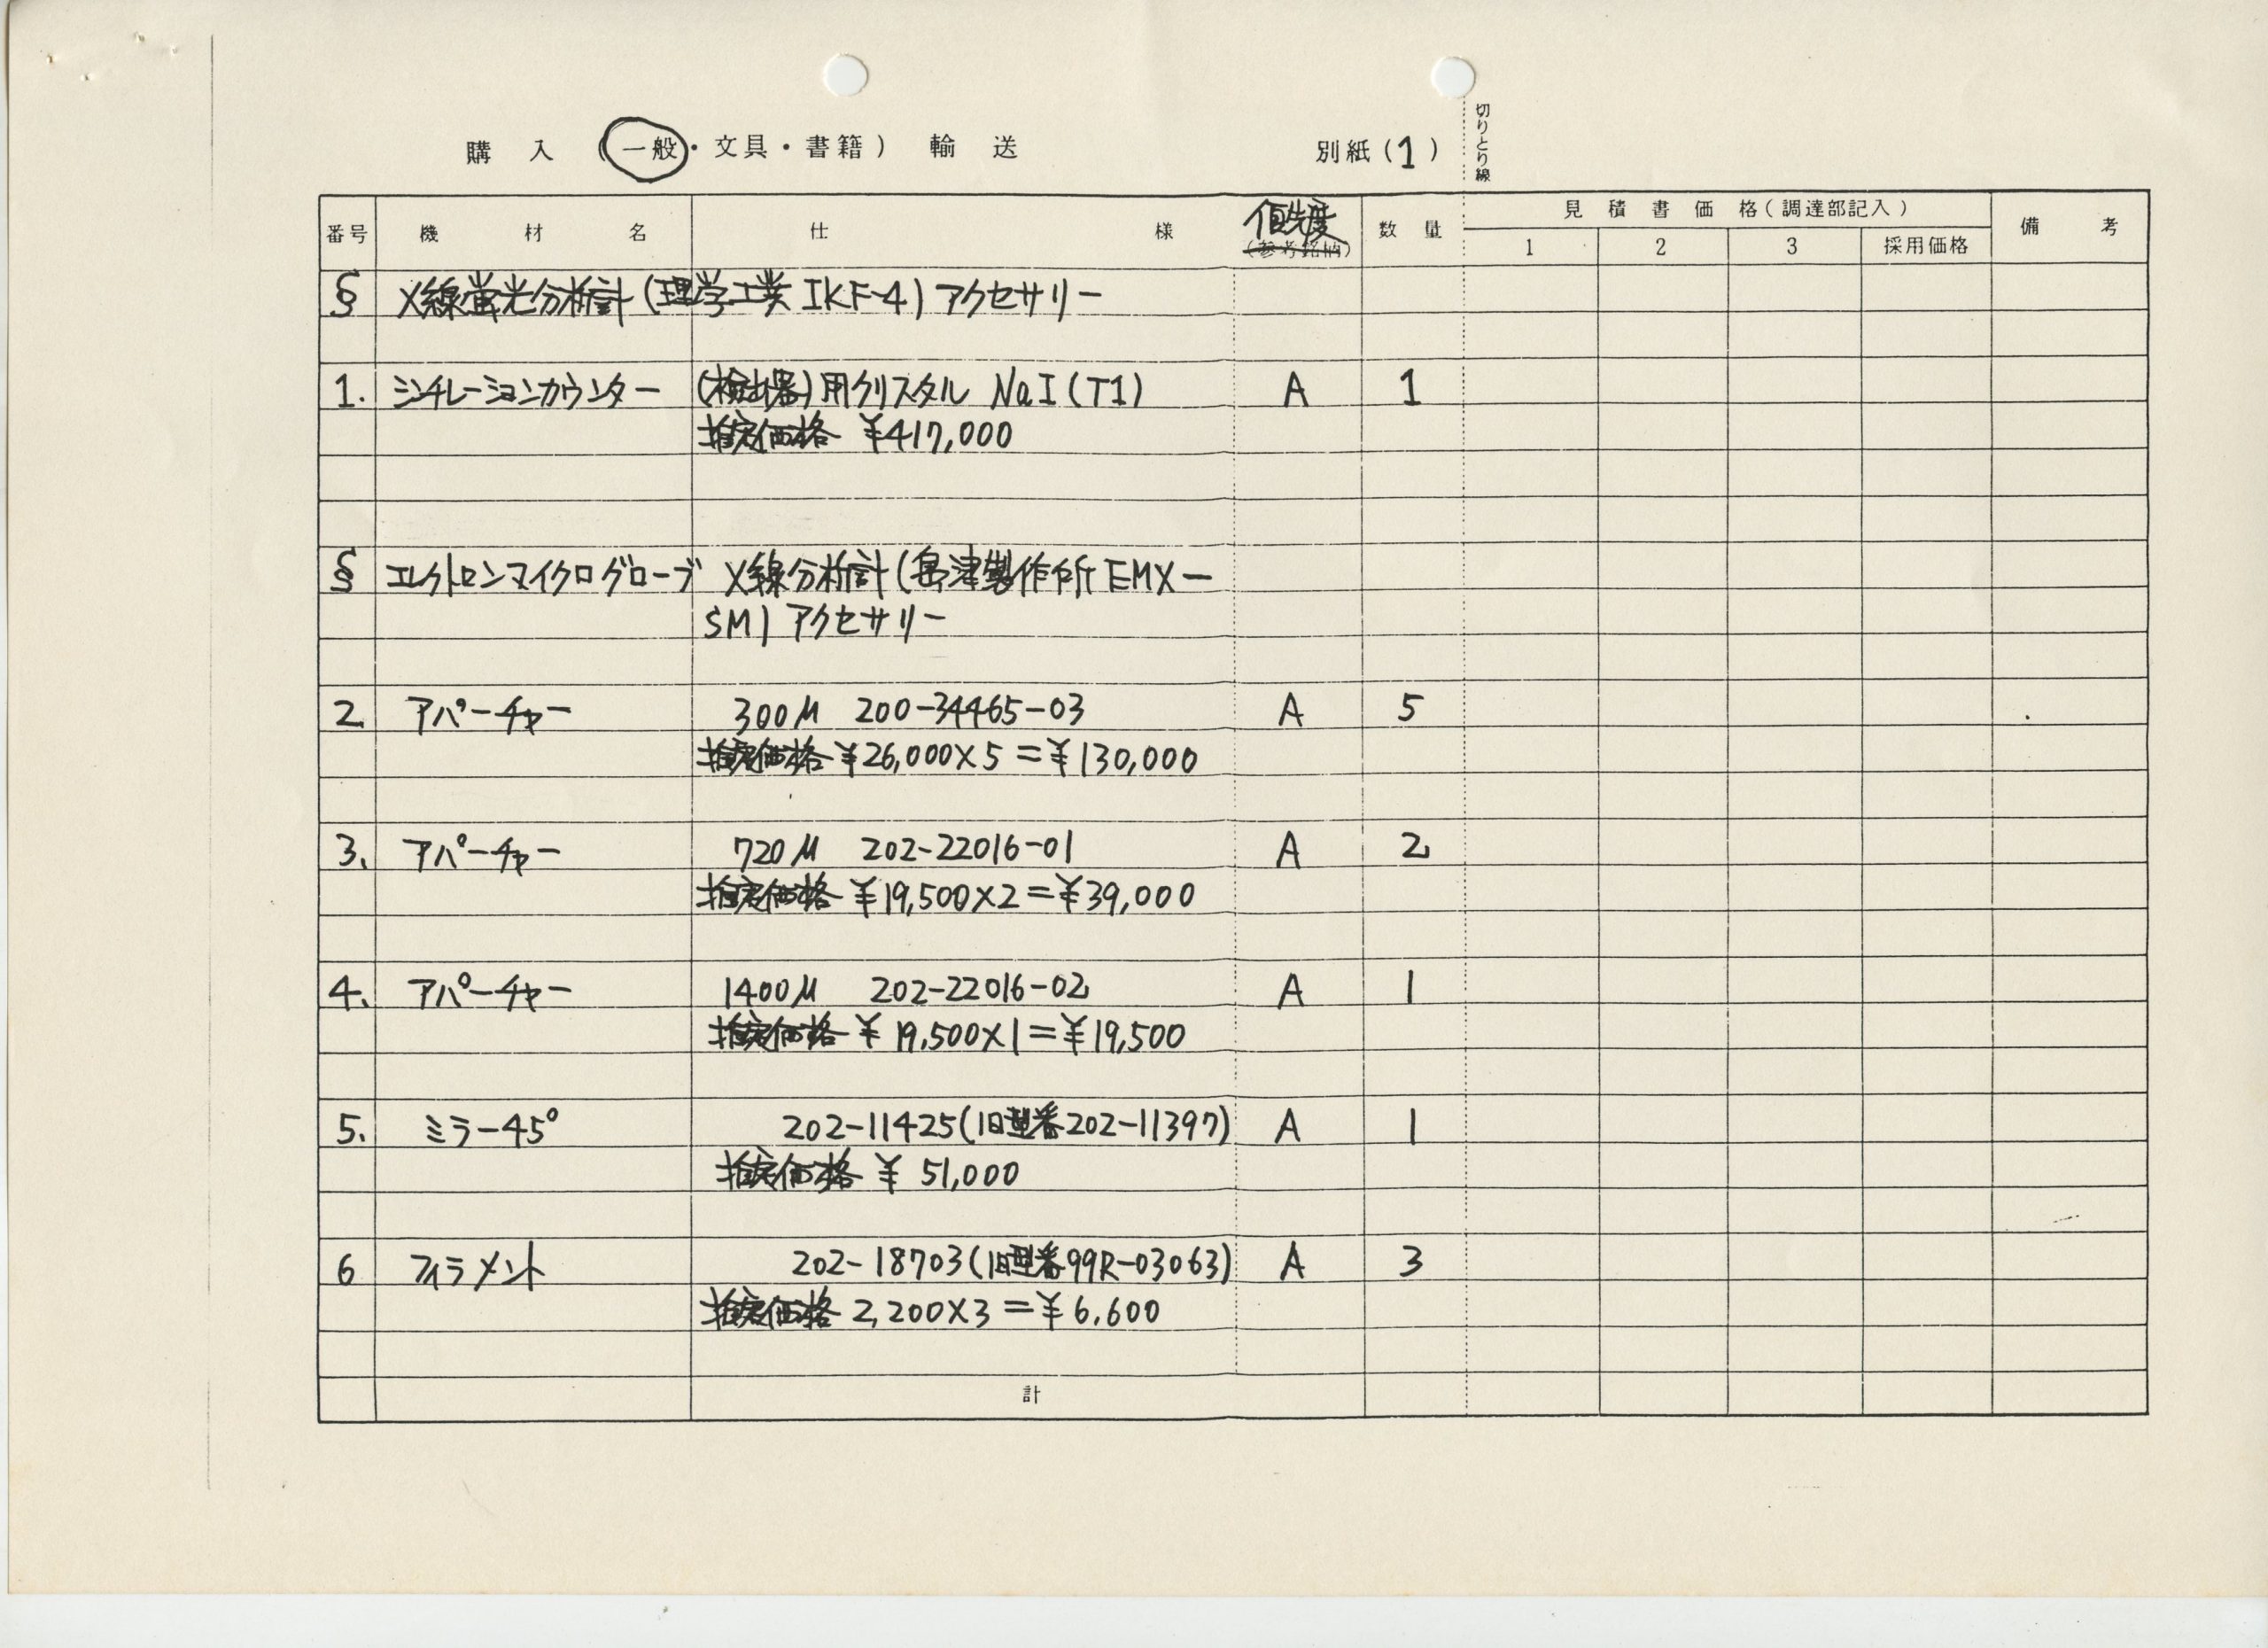 購入(一般・文具・書籍)輸送
別紙(1)
切りとり線
番号 機材名 仕様 優先度 (参考銘柄) 数量 見積書価格(調達部記入) 備考
1 2 3 採用価格
§ X線螢光分析計(理学工業 IKF-4) アクセサリー
1. シンチレーションカウンター (検出器)用クリスタル NaI(T1) A 1
推定価格 ¥417,000
§ エレクトロンマイクログローブ X線分析計(島津製作所 EMX-
SM) アクセサリー
2. アパーチャー 300μ 200-34465-03 A 5
推定価格 ¥26,000×5=¥130,000
3. アパーチャー 720μ 202-22016-01 A 2
推定価格 ¥19,500×2=¥39,000
4. アパーチャー 1400μ 202-22016-02 A 1
推定価格 ¥19,500×1=¥19,500
5. ミラー45° 202-11425(旧型番202-11397) A 1
推定価格 ¥51,000
6 フィラメント 202-18703(旧型番99R-03063) A 3
推定価格 2,200×3=¥6,600
計